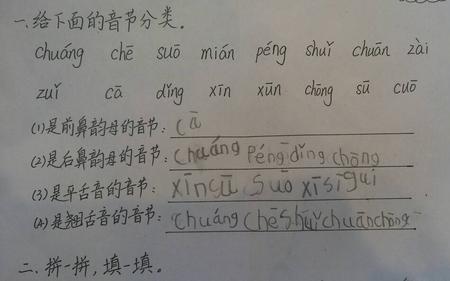 一、给下面的音节分类。
chuáng chē suō mián péng shuǐ chuān zài
zuǐ cā dǐng xīn xūn chōng sū cuō
(1)是前鼻韵母的音节：cā
(2)是后鼻韵母的音节：chuáng péng dǐng chōng
(3)是平舌音的音节：xīn cū suō xī sī gui
(4)是翘舌音的音节：chuáng chē shuǐ chuān chōng
二、拼一拼，填一填。